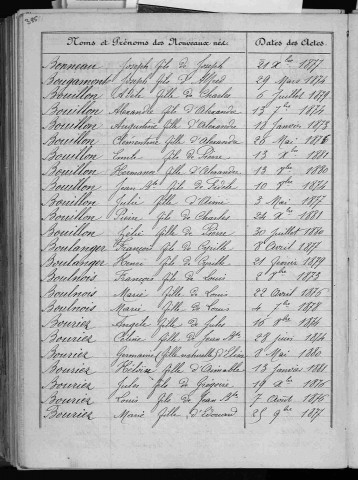 395
Noms et Prénoms des Nouveaux nés. Dates des Actes
Bonneau Joseph fils de Joseph 21 Xbre 1877
Bougamont Joseph fils d'Alfred 29 Mars 1874
Bouillon Adèle fille de Charles 6 Juillet 1879
Bouillon Alexandre fils d'Alexandre 13 7bre 1874
Bouillon Augustine fille d'Alexandre 18 Janvier 1873
Bouillon Clémentine fille d'Alexandre 25 Mai 1876
Bouillon Emile fils de Pierre 13 Xbre 1881
Bouillon Hermance fille d'Alexandre 13 Xbre 1880
Bouillon Jean Bte fils de 10 1874
Bouillon Julie fille d'Aimé 3 Mai 1877
Bouillon Pierre fils de Charles 24 Xbre 1881
Bouillon Zélie fille de Pierre 30 Juillet 1880
Boulanger François fils de Cyrille 8 Avril 1877
Boulanger Henri fils de Cyrille 21 Février 1879
Boulnois François fils de Louis 2 1873
Boulnois Marie fille de Louis 22 Avril 1876
Boulnois Marie fille de Louis 4 7bre 1878
Bourier Angèle fille de Jules 16 1874
Bourier Céline fille de Jean Bte 28 Juin 1874
Bourier Germaine fille naturelle d' 8 Mai 1880
Bourier Héloïse fille d'Aimable 13 Janvier 1881
Bourier Jules fils de Grégoire 19 Xbre 1876
Bourier Louis fils de Jean Bte 7 Août 1876
Bourier Marie fille d'Edouard 25 9bre 1871